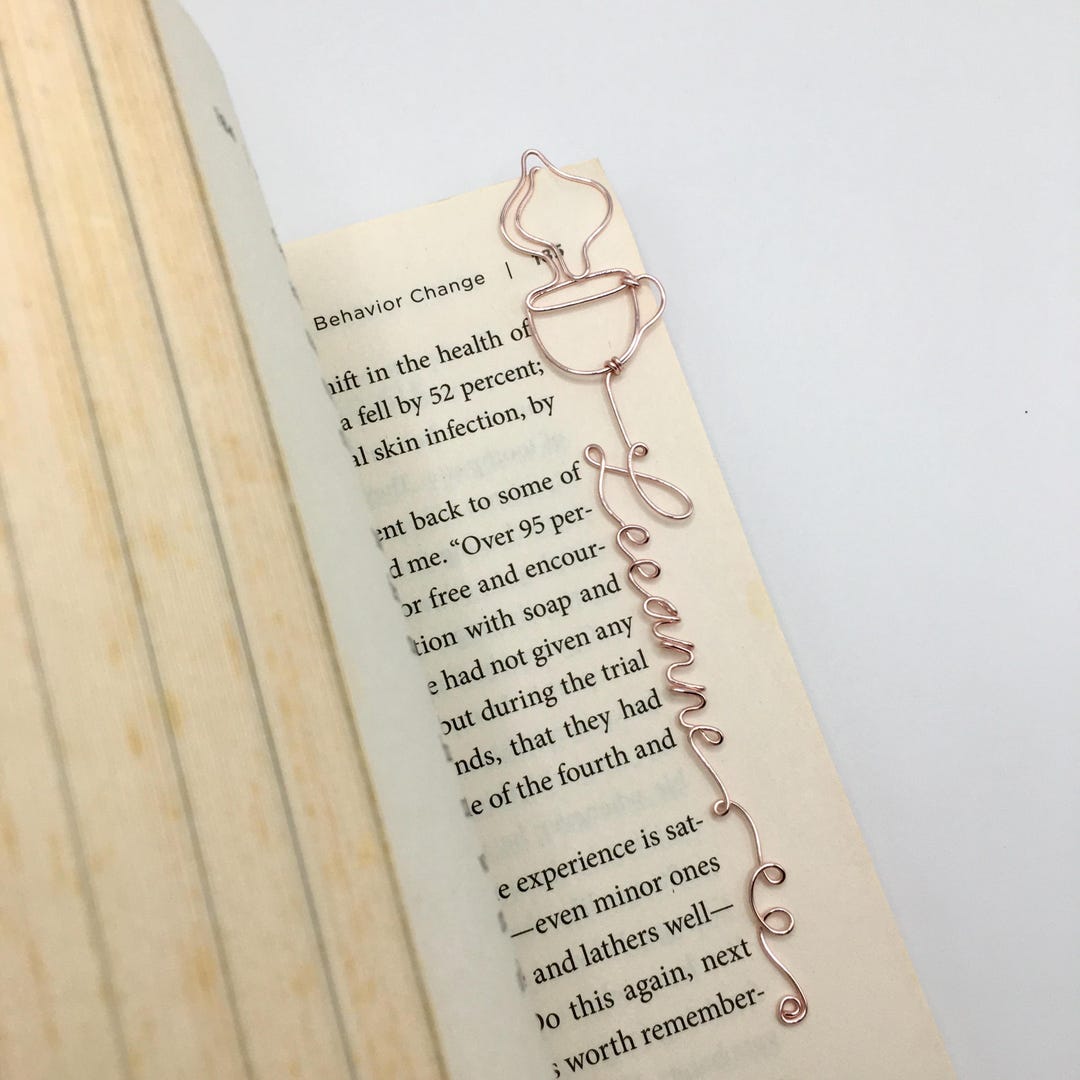 Behavior Change | 135
hift in the health of
a fell by 52 percent;
al skin infection, by
ent back to some of
d me. “Over 95 per-
or free and encour-
tion with soap and
e had not given any
out during the trial
nds, that they had
le of the fourth and
e experience is sat-
—even minor ones
and lathers well—
Do this again, next
s worth remember-
Leanne